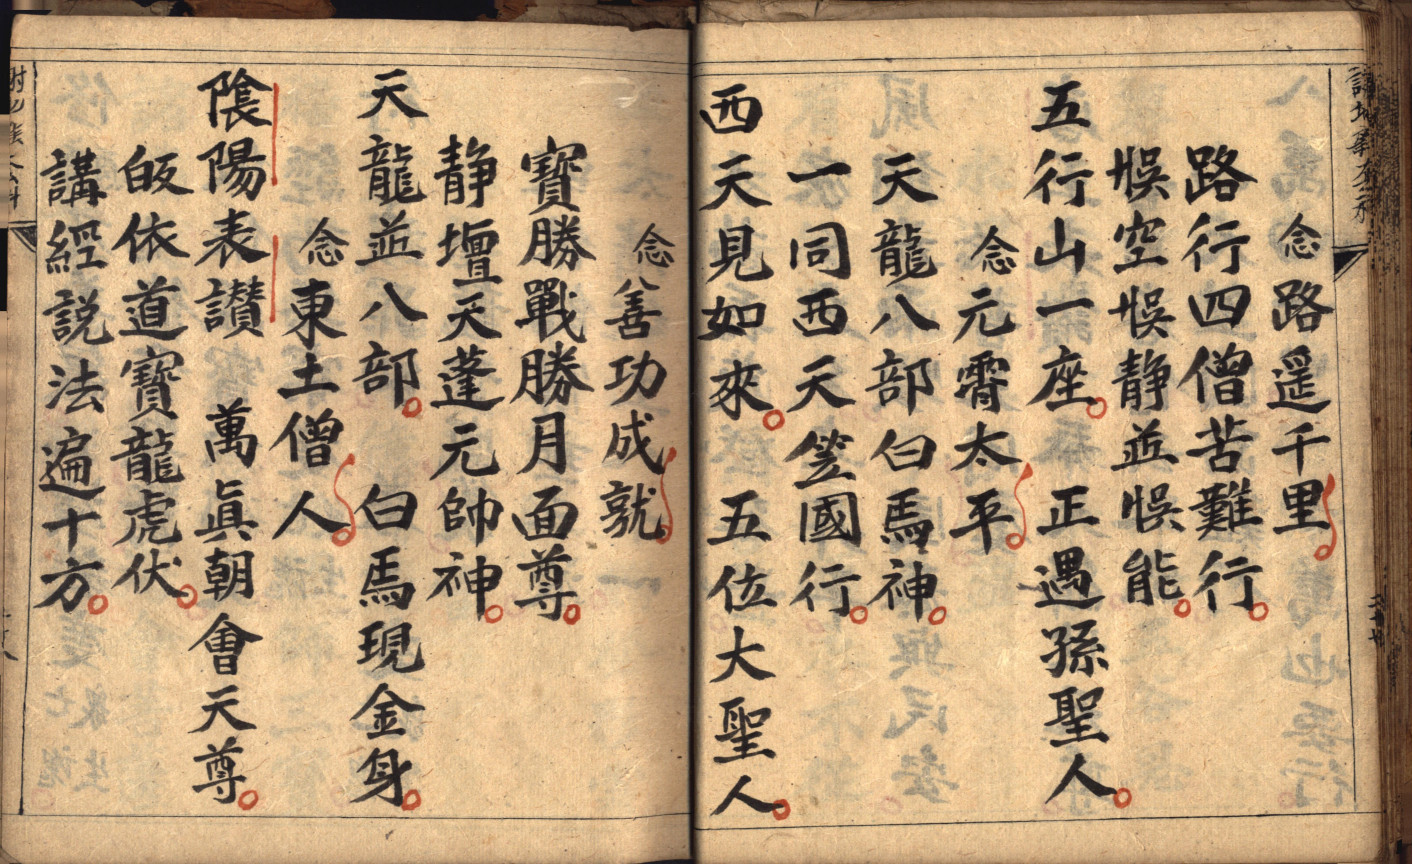 念路遥千里
路行四僧苦難行
悮空悮静並悮能
五行山一座 正遇孫聖人
念元霄太平
天龍八部白馬神
一同西天笠國行
西天見如來 五位大聖人
念善功成就
寳勝戰勝月面尊
静壇天蓬元帥神
天龍並八部 白馬現金身
念東土僧人
隂陽表讃 萬眞朝會天尊
皈依道寳龍虎伏
講經説法遍十方